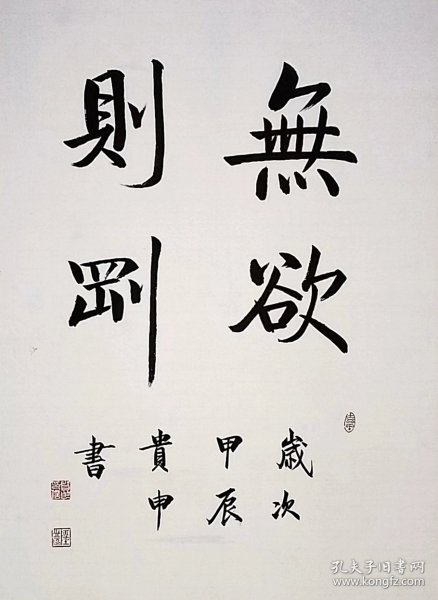 無欲
則剛
歲次
甲辰
貴申
書
孔夫子旧书网
www.kongfz.com